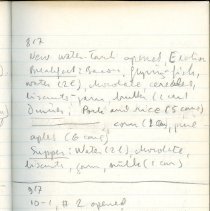 8/7
New water-tank opened,
Breakfast: Bacon, flying-fish,
water (2 ), chocolate cereales,
biscuits, jam, butter (1 can)
Dinner: Pork and rice (5 cans)
corn (1 can), pine
aples (6 cans)
Supper: Water (2 ), chocolate,
biscuits, jam, milk (1 can)
9/7
10-1, # 2 opened